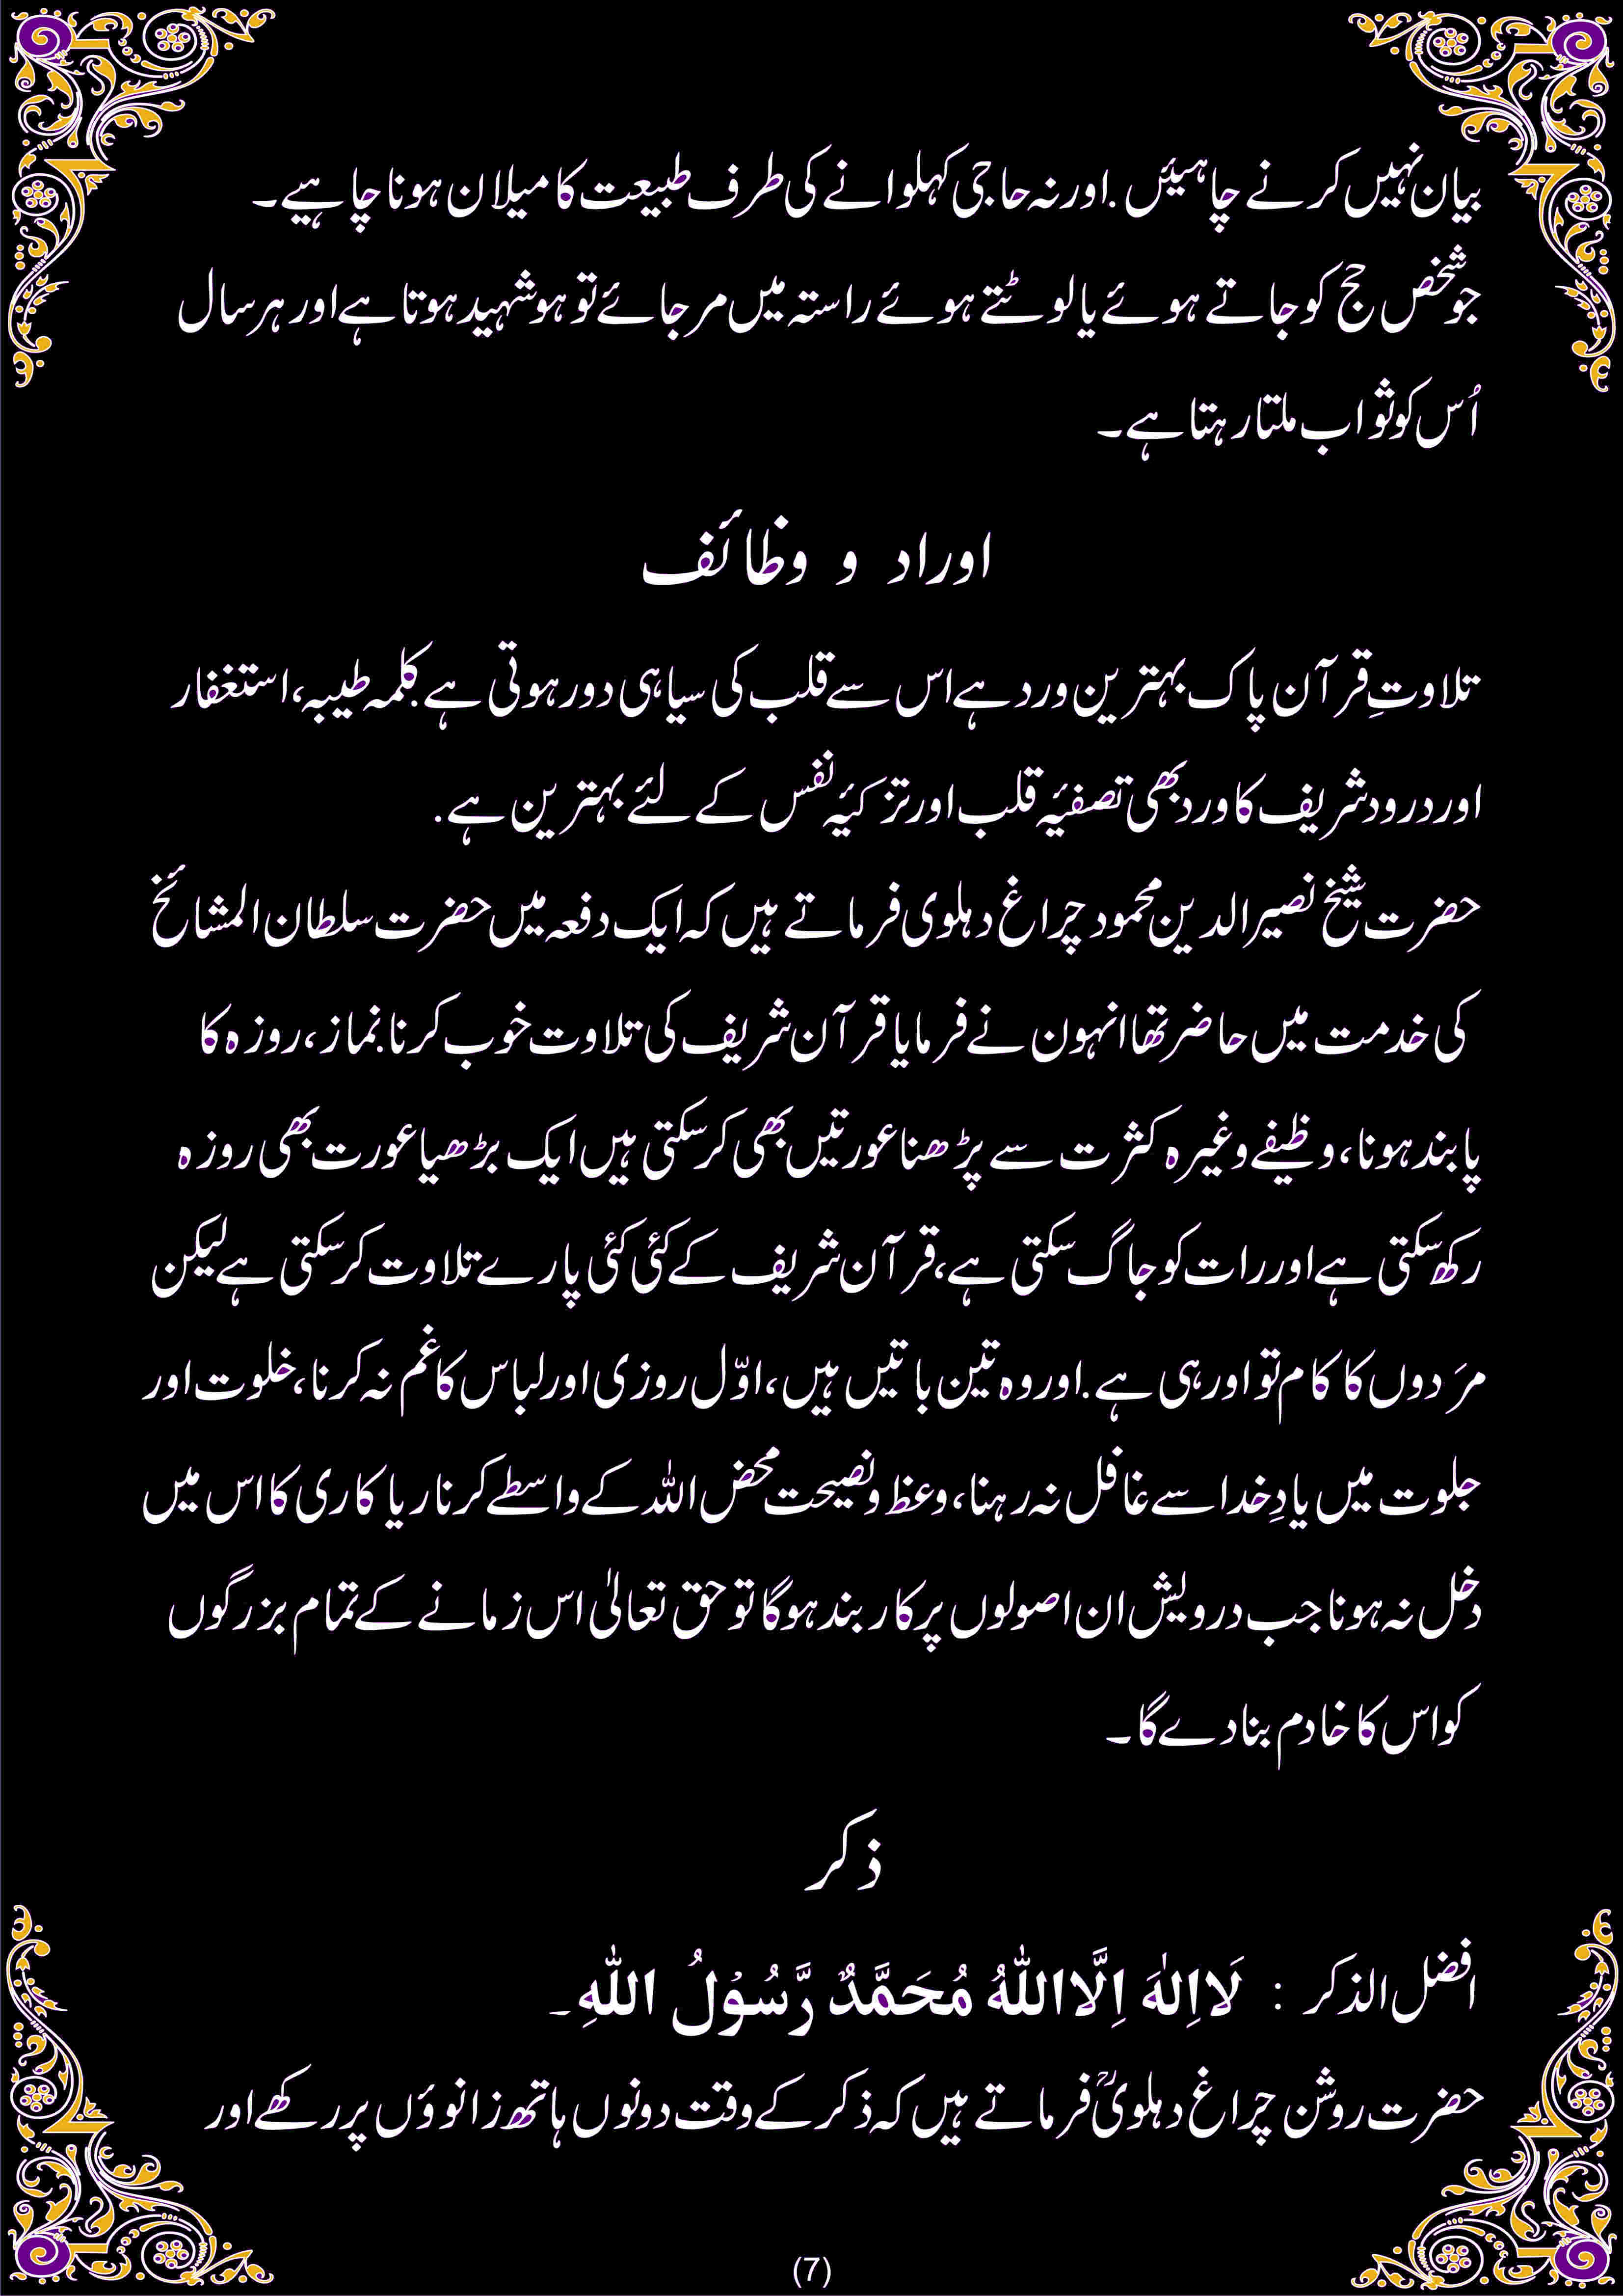 بیان نہیں کرنے چاہیئں .اور نہ حاجی کہلوانے کی طرف طبیعت کا میلان ہونا چاہیے۔
جو شخص حج کو جاتے ہوئے یا لوٹتے ہوئے راستہ میں مر جائے تو ہو شہید ہوتا ہے اور ہر سال
اُس کو ثواب ملتا رہتا ہے۔
اوراد و وظائف
تلاوتِ قرآن پاک بہترین ورد ہے اس سے قلب کی سیاہی دور ہوتی ہے .کلمہ طیبہ، استغفار
اور درود شریف کا ورد بھی تصفیۂ قلب اور تزکیۂ نفس کے لئے بہترین ہے .
حضرت شیخ نصیر الدین محمود چراغ دہلوی فرماتے ہیں کہ ایک دفعہ میں حضرت سلطان المشائخ
کی خدمت میں حاضر تھا انہون نے فرمایا قرآن شریف کی تلاوت خوب کرنا .نماز ، روزہ کا
پابند ہونا ، وظیفے وغیرہ کثرت سے پڑھنا عورتیں بھی کرسکتی ہیں ایک بڑھیا عورت بھی روزہ
رکھ سکتی ہے اور رات کو جاگ سکتی ہے، قرآن شریف کے کئی کئی پارے تلاوت کرسکتی ہے لیکن
مَردوں کا کام تو اور ہی ہے .اور وہ تین باتیں ہیں ، اوّل روزی اور لباس کا غم نہ کرنا ، خلوت اور
جلوت میں یادِ خدا سے غافل نہ رہنا ، وعظ و نصیحت محض اللہ کے واسطے کرنا ریا کاری کا اس میں
دخل نہ ہونا جب درویش ان اصولوں پر کاربند ہوگا تو حق تعالیٰ اس زمانے کے تمام بزرگوں
کو اس کا خادم بنادے گا۔
ذکر
افضل الذکر : لَااِلٰهَ اِلَّااللّٰهُ مُحَمَّدٌ رَّسُوْلُ اللّٰهِ۔
حضرت روشن چراغ دہلویؒ فرماتے ہیں کہ ذکر کے وقت دونوں ہاتھ زانوؤں پر رکھے اور
(7)